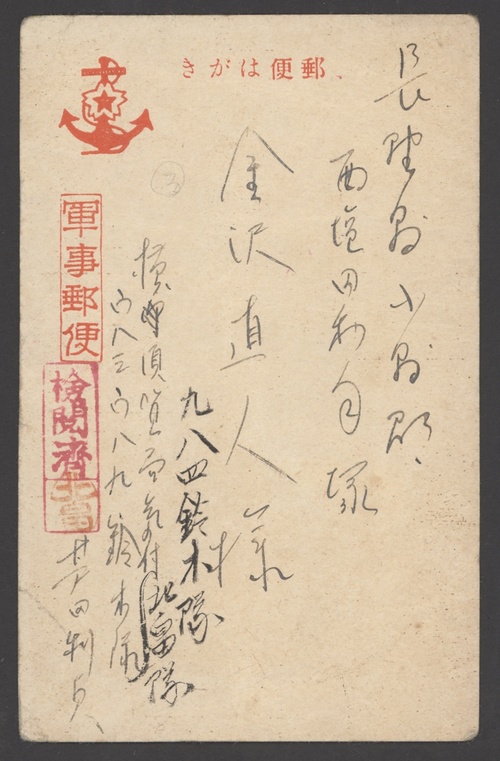 郵便はがき
長野縣小縣郡、
西塩田村手塚
金沢直人様
九八四鈴木隊
横須賀局気付北富隊
ウ八三ウ八九鈴木隊
軍事郵便
検閲済
北富